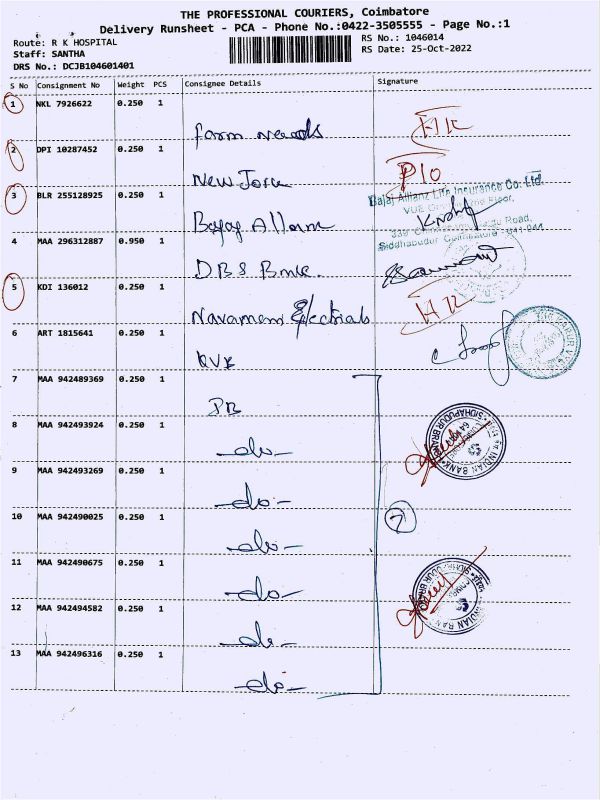 THE PROFESSIONAL COURIERS, Coimbatore
Delivery Runsheet - PCA - Phone No.:0422-3505555 - Page No.:1
Route: R K HOSPITAL
Staff: SANTHA
DRS No.: DCJB104601401
RS No.: 1046014
RS Date: 25-Oct-2022
S No Consignment No Weight PCS Consignee Details Signature
1 NKL 7926622 0.250 1
Farm needs
2 DPI 10287452 0.250 1
3 BLR 255128925 0.250 1
Bajaj Allianz Life Insurance Co. Ltd.
4 MAA 296312887 0.950 1
DBS Bank
5 KDI 136012 0.250 1
6 ART 1815641 0.250 1
KVB
7 MAA 942489369 0.250 1
IB
8 MAA 942493924 0.250 1
-do-
9 MAA 942493269 0.250 1
-do-
10 MAA 942490025 0.250 1
-do-
11 MAA 942490675 0.250 1
-do-
12 MAA 942494582 0.250 1
-do-
13 MAA 942496316 0.250 1
-do-
7
INDIAN BANK
INDIAN BANK